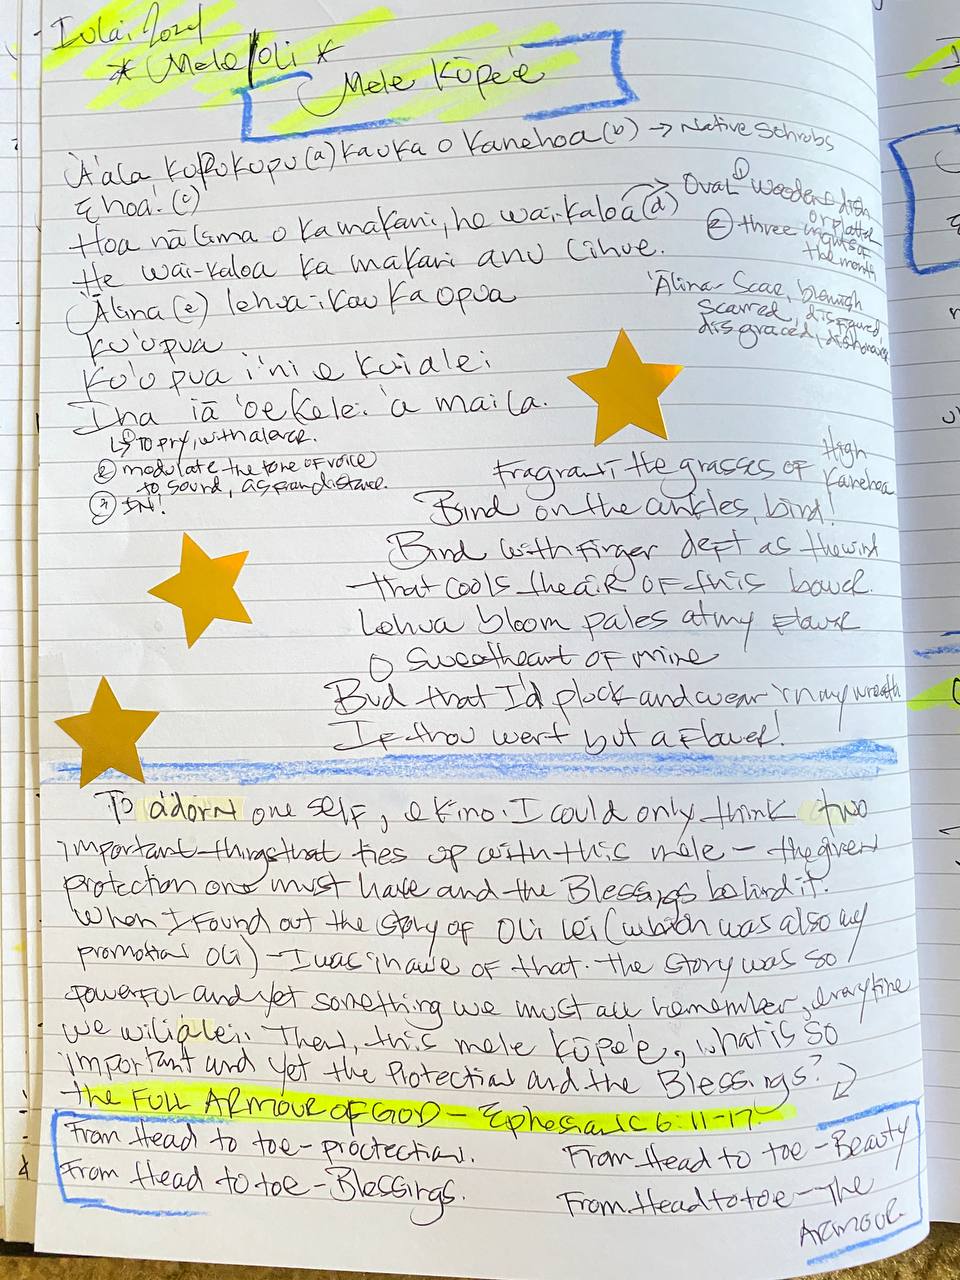 Iulai. 2024
* Mele/Oli *
Mele Kūpe'e
A'ala kupukupu (a) ka uka o Kanehoa (b) → Native Schrubs
E hoa! (c)
Hoa nā lima o ka makani, he wai-kaloa (d) → ① Oval wooden dish
or platter
② three nights of
the month
He wai-kaloa ka makani anu Lihue.
Ālina (e) lehua i kau ka opua
'Ālina - Scar, blemish
scarred, disfigured,
disgraced, dishonored
Ku'u pua
Ku'u pua i'ini e kui a lei
Ina iā 'oe ke lei 'a maila.
↳ ① To pry, with a lever.
② modulate the tone of voice
to sound, as from distance.
③ IN!
Fragrant the grasses of High
Kanehoa
Bind on the ankles, bind!
Bind with finger deft as the wind
that cools the air of this bower.
Lehua bloom pales at my flower
O sweetheart of mine
Bud that I'd pluck and wear in my wreath
If thou wert but a flower!
To adorn one self, e kino. I could only think two
important things that ties up with this mele - the given
protection one must have and the Blessings behind it.
When I found out the story of Oli Lei (which was also my
promotion Oli) - I was in awe of that. The story was so
powerful and yet something we must all remember, everytime
we wili a lei. Then, this mele kūpe'e, what is so
important and yet the Protection and the Blessings?
the FULL ARMOUR OF GOD - Ephesians 6:11-17
From Head to toe - proctection.
From Head to toe - Blessings.
From Head to toe - Beauty
From Head to toe - The
ARMOUR